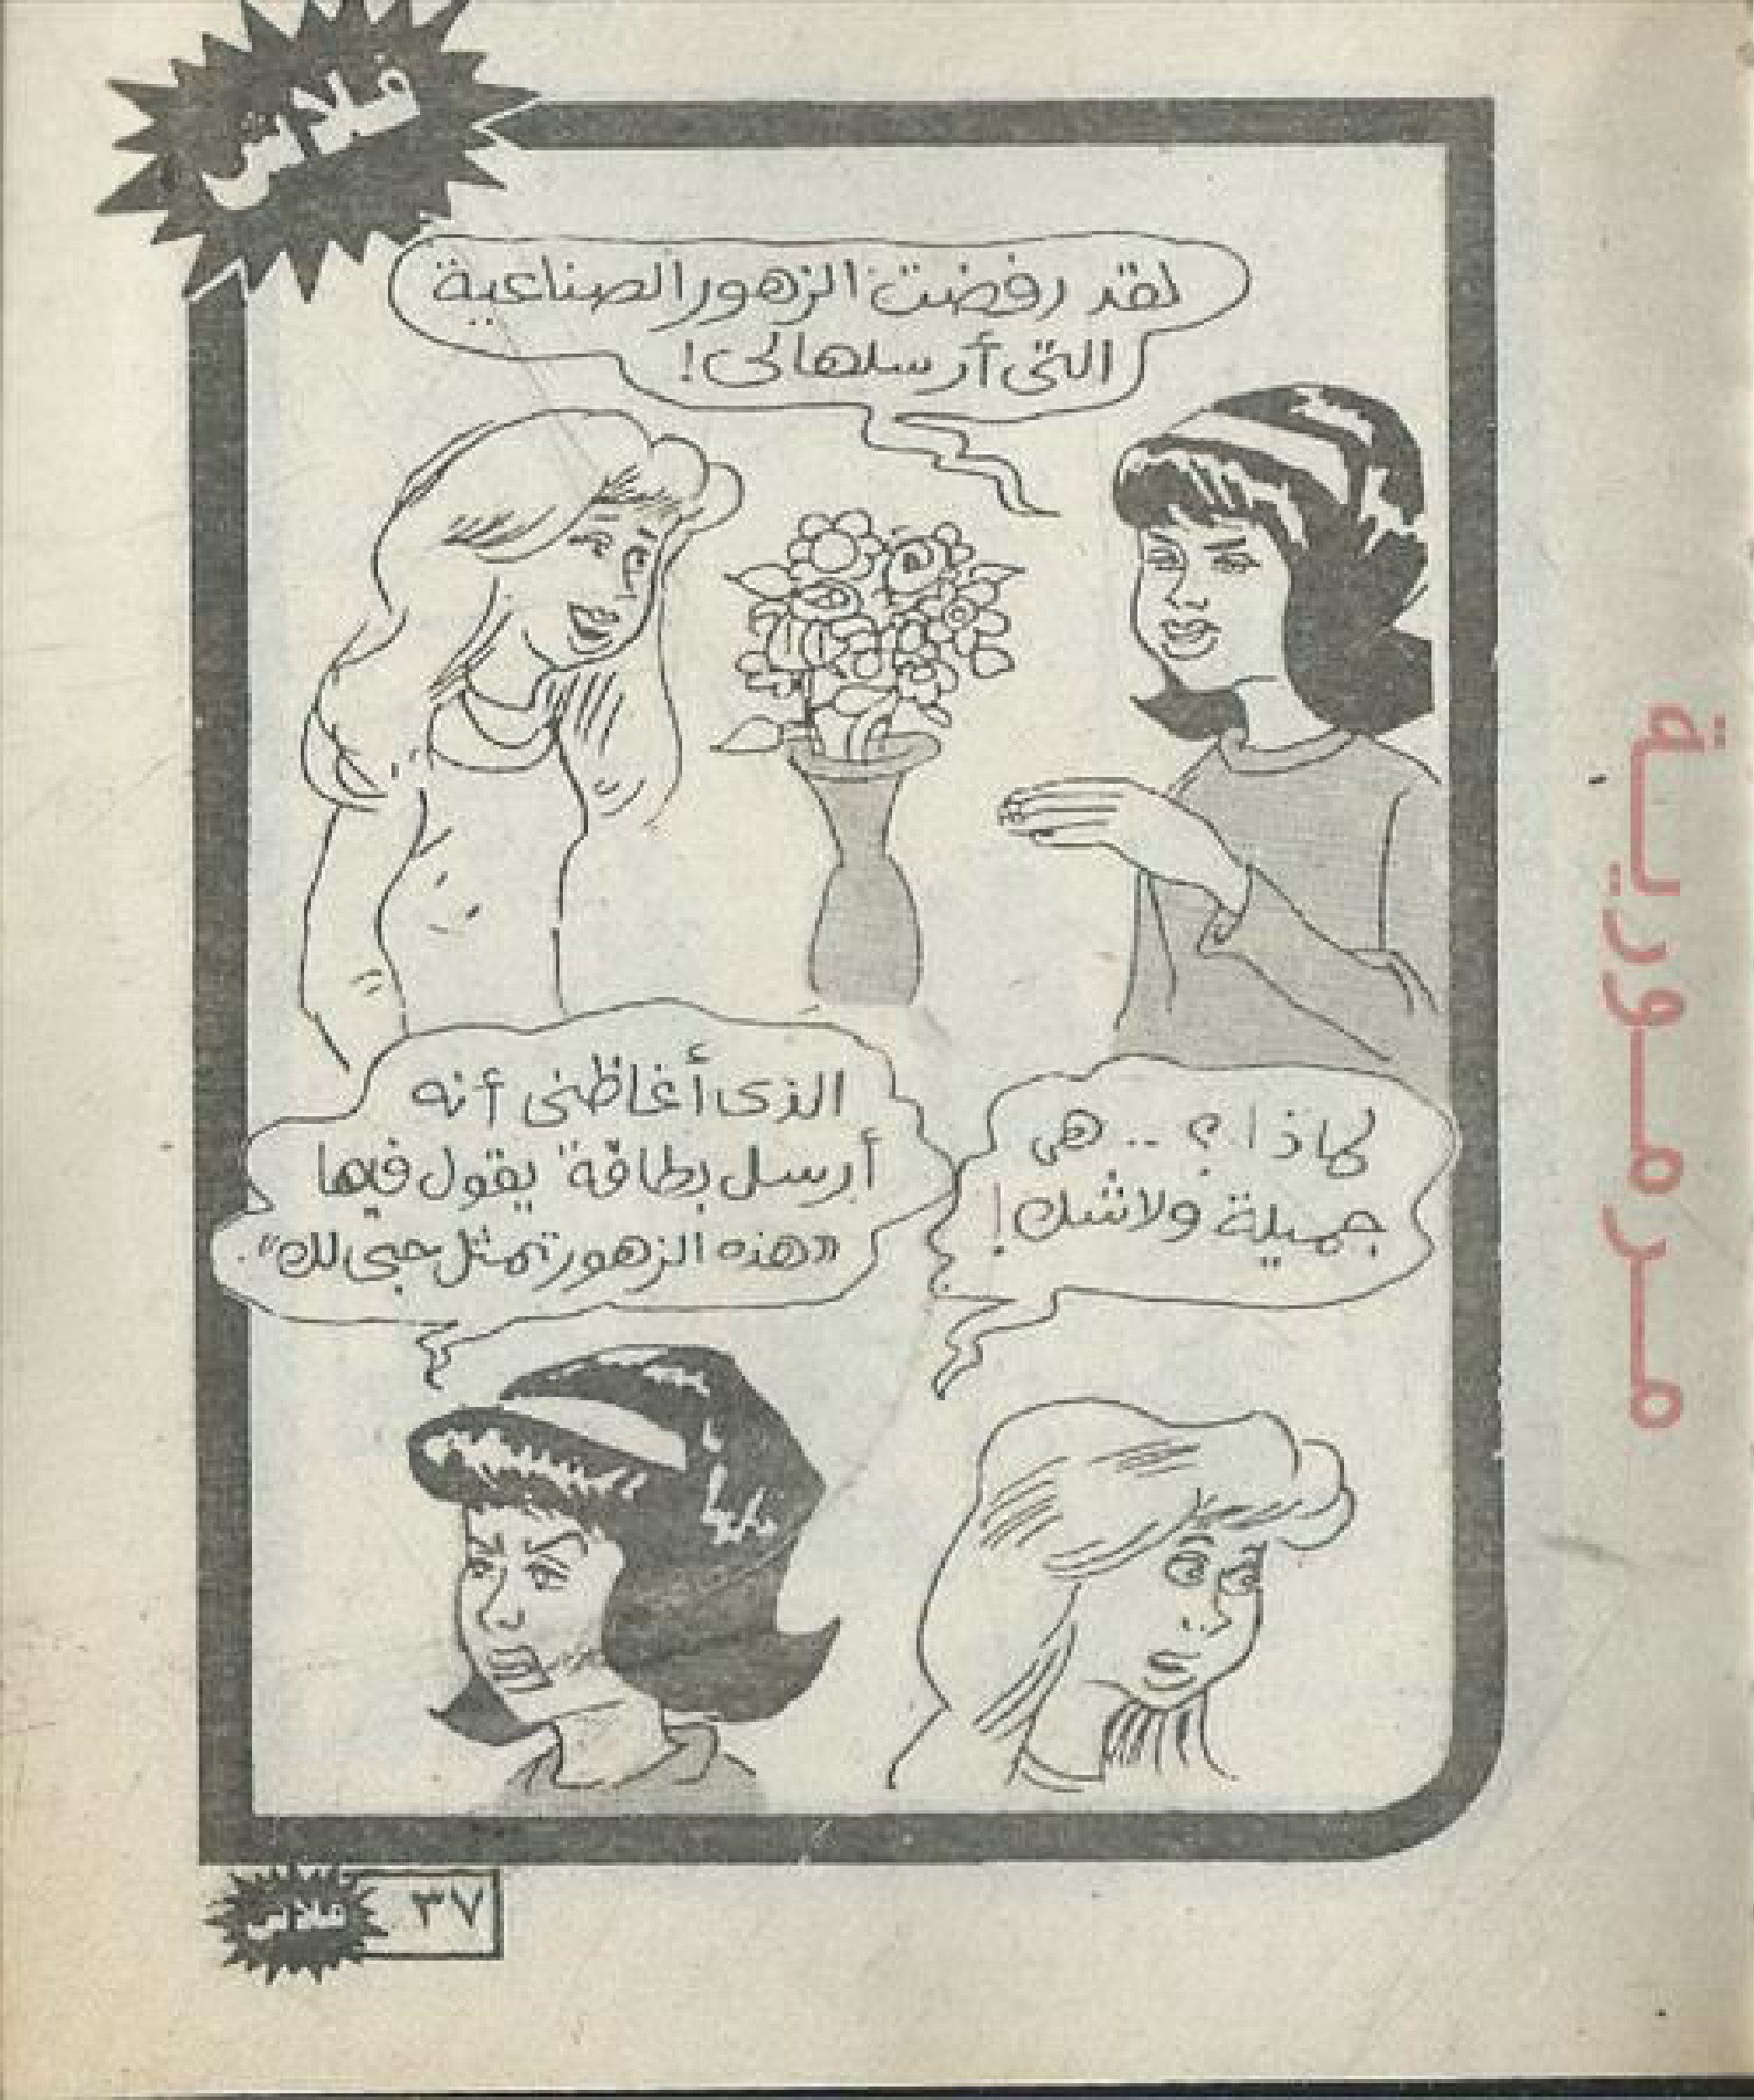 فلاش
لقد رفضت الزهور الصناعية
التى أرسلها لى!
لماذا؟.. هى
جميلة ولاشك!
الذى أغاظنى أنه
أرسل بطاقة يقول فيها
«هذه الزهور تمثل حبى لك».
فلاش
٣٧
مرمورية